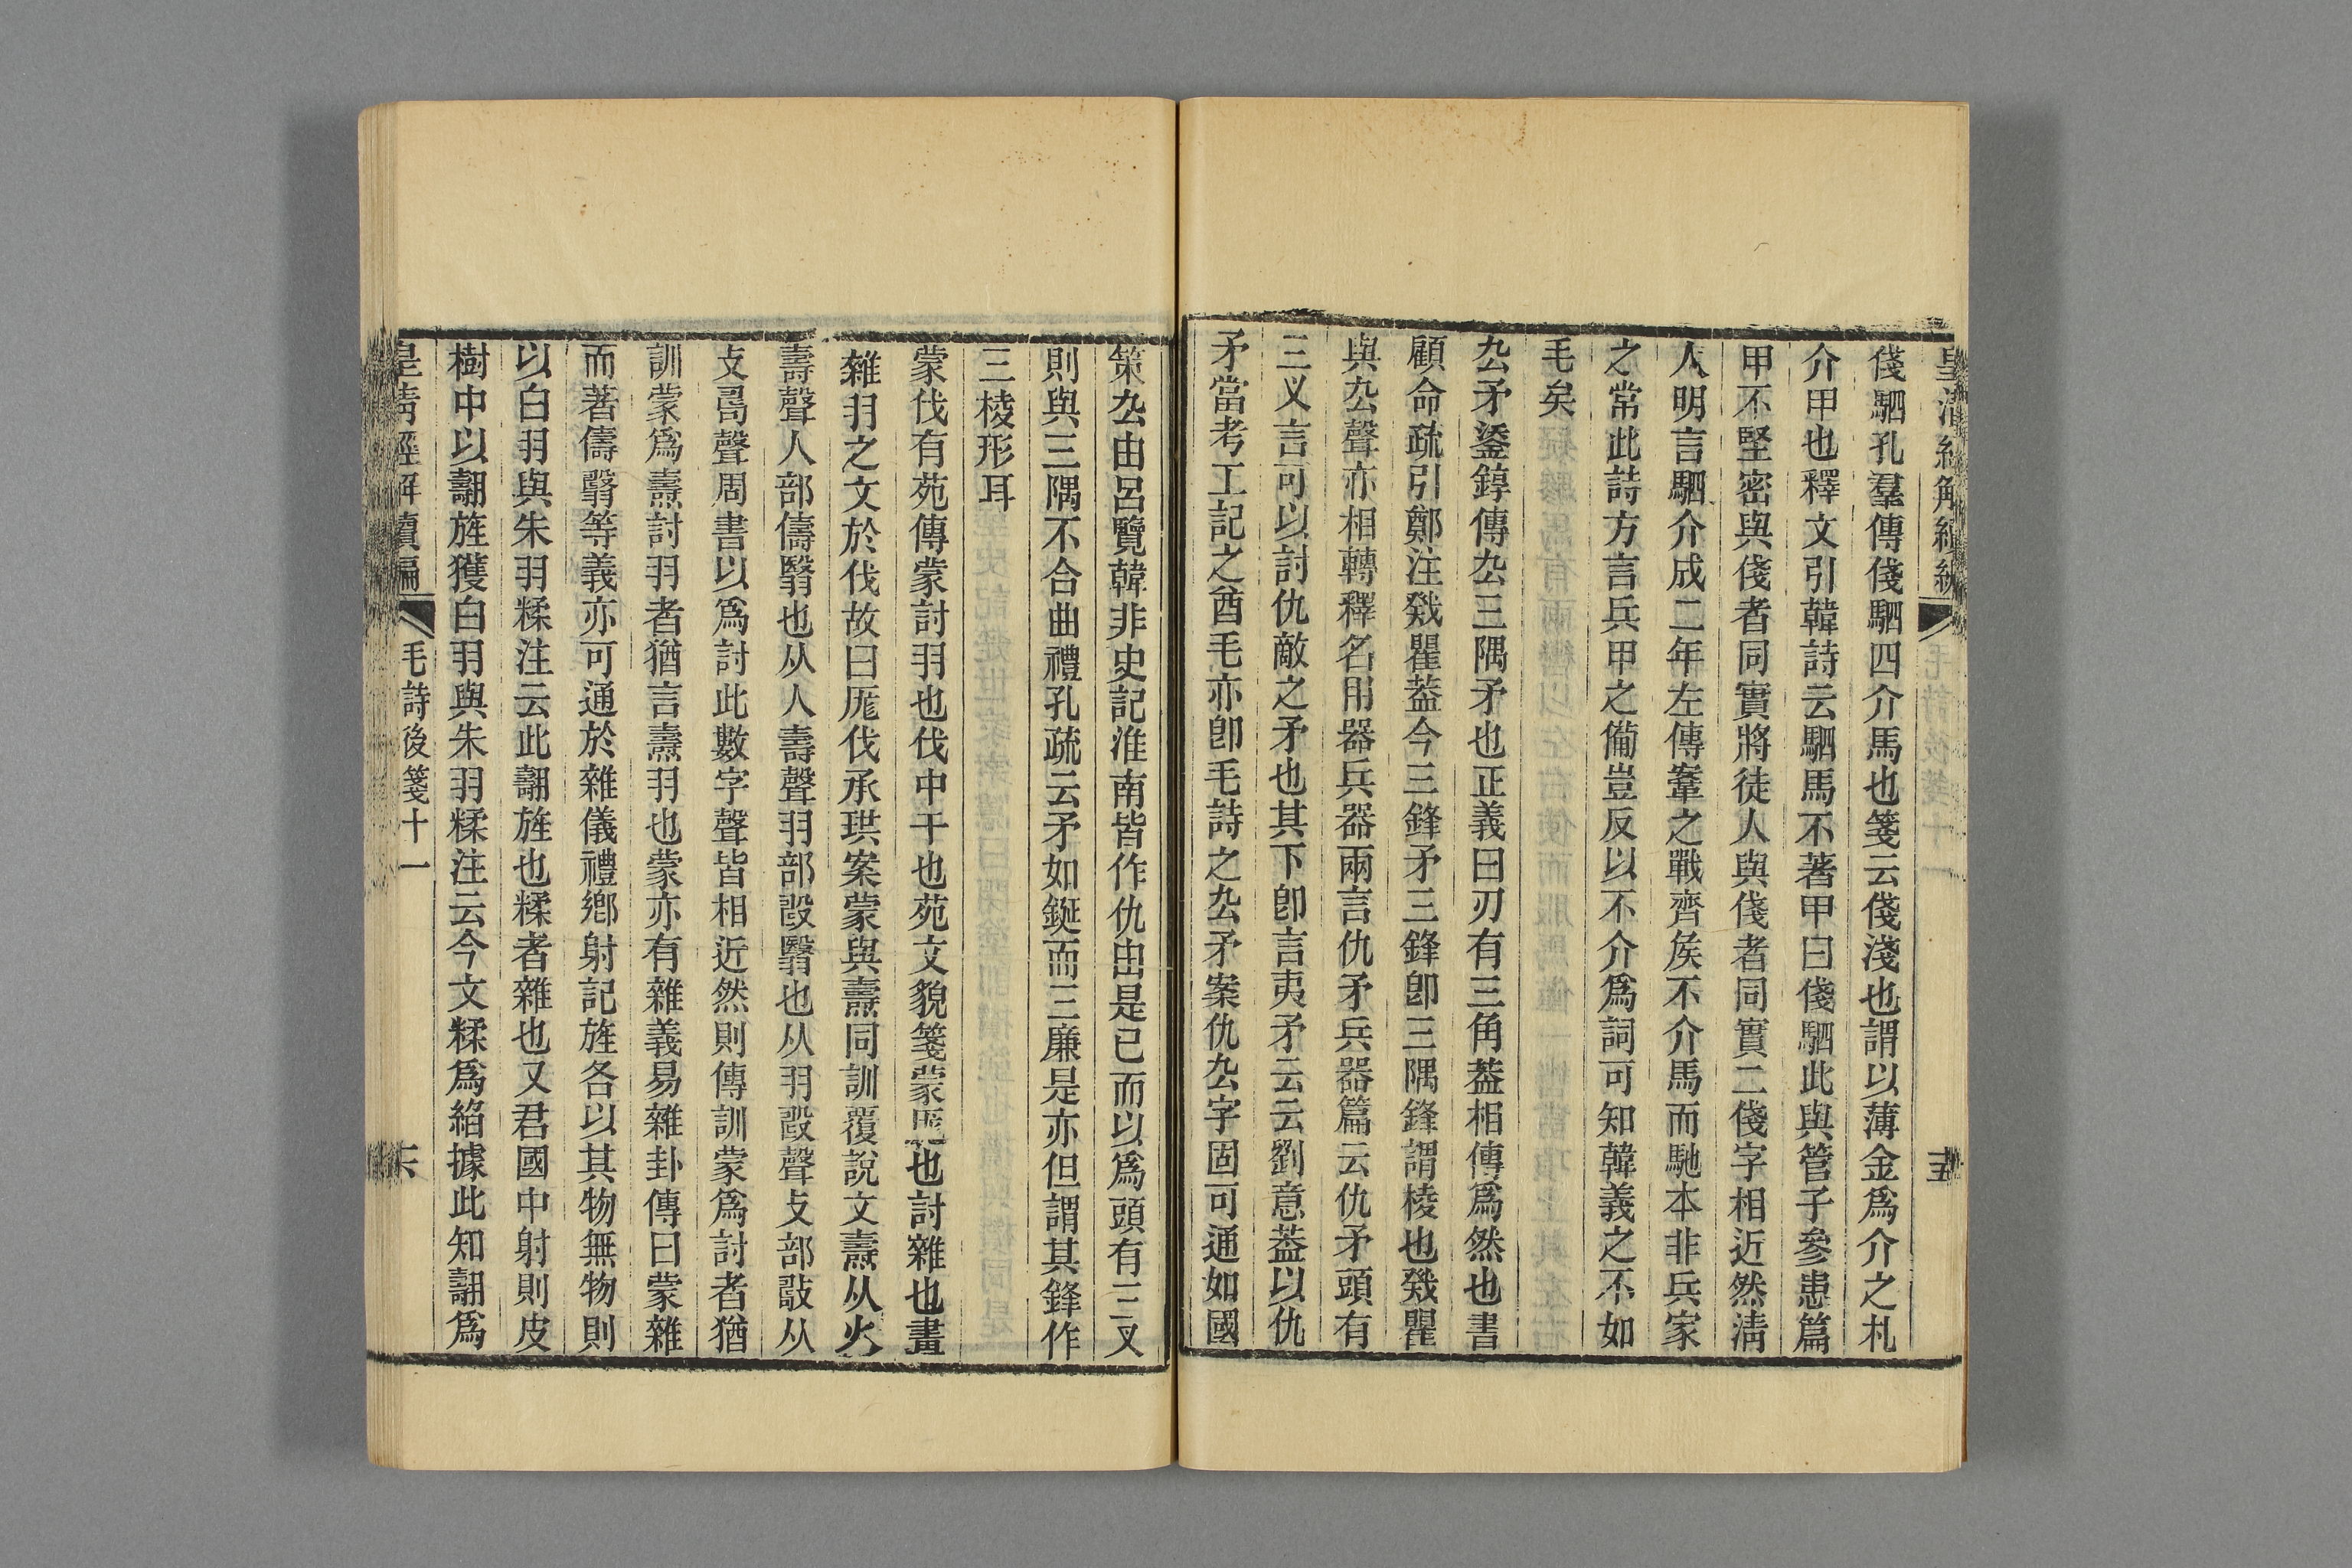 俴駟孔羣傳俴駟四介馬也箋云俴淺也謂以薄金爲介之札
介甲也釋文引韓詩云駟馬不著甲曰俴駟此與管子參患篇
甲不堅密與俴者同實將徒人與俴者同實二俴字相近然淸
人明言駟介成二年左傳鞌之戰齊矦不介馬而馳本非兵家
之常此詩方言兵甲之備豈反以不介爲詞可知韓義之不如
毛矣
厹矛鋈錞傳厹三隅矛也正義曰刃有三角葢相傳爲然也書
顧命疏引鄭注戣瞿葢今三鋒矛三鋒卽三隅鋒謂棱也戣瞿
與厹聲亦相轉釋名用器兵器兩言仇矛兵器篇云仇矛頭有
三叉言可以討仇敵之矛也其下卽言夷矛云云劉意葢以仇
矛當考工記之酋毛亦卽毛詩之厹矛案仇厹字固可通如國
策厹由呂覽韓非史記淮南皆作仇由是已而以爲頭有三叉
則與三隅不合曲禮孔疏云矛如鋋而三廉是亦但謂其鋒作
三棱形耳
蒙伐有苑傳蒙討羽也伐中干也苑文貌箋蒙厖也討雜也畫
雜羽之文於伐故曰厖伐承珙案蒙與翿同訓覆說文燾从火
壽聲人部儔翳也从人壽聲羽部翳也从羽殹聲攴部敺从
攴聲周書以爲討此數字聲皆相近然則傳訓蒙爲討者猶
訓蒙爲燾討羽者猶言燾羽也蒙亦有雜義易雜卦傳曰蒙雜
而著儔翳等義亦可通於雜儀禮鄉射記旌各以其物無物則
以白羽與朱羽糅注云此翿旌也糅者雜也又君國中射則皮
樹中以翿旌獲白羽與朱羽糅注云今文糅爲縚據此知翿爲
皇淸經解續編 毛詩後箋十一